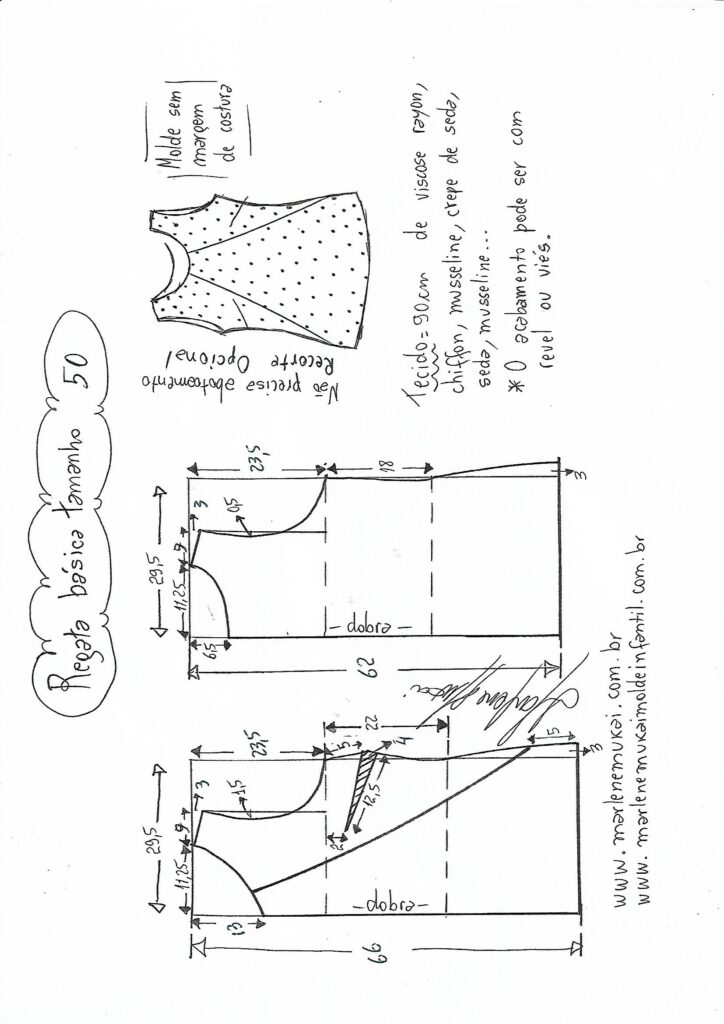 Regata básica tamanho 50
Molde sem
margem
de costura
Não precisa abotoamento
Recorte Opcional
Tecido = 90cm de viscose rayon,
chiffon, musseline, crepe de seda,
seda, musseline...
* O acabamento pode ser com
revel ou viés.
29,5
11,25
9
3
23,5
1,5
13
5
4
22
12,5
2
-dobra-
15
3
66
29,5
11,25
9
3
23,5
0,5
6,5
18
-dobra-
3
62
Marlene Mukai
www.marlenemukai.com.br
www.marlenemukaimoldeinfantil.com.br